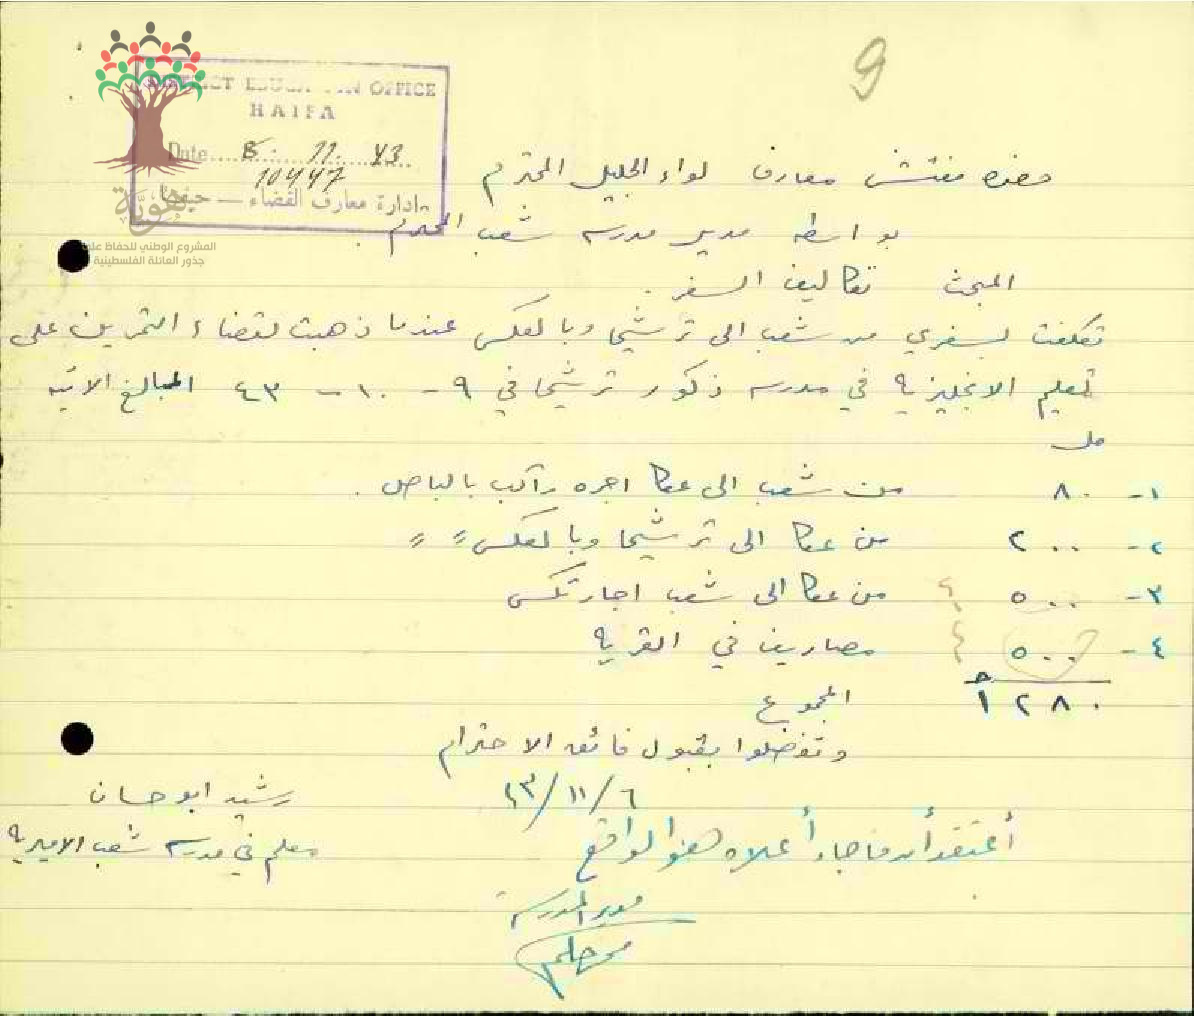 9
DISTRICT EDUCATION OFFICE
HAIFA
Date 8. 11. 43
10447
ادارة معارف القضاء — حيفا
هوية
المشروع الوطني للحفاظ على
جذور العائلة الفلسطينية
حضرة مفتش معارف لواء الجليل المحترم
بواسطه مدير مدرسه شعب المحترم .
المبحث تكاليف السفر .
تكلفت لسفري من شعب الى ترشيحا وبالعكس عندما ذهبت لقضاء التمرين على
تعليم الانجليزيه في مدرسه ذكور ترشيحا في ٩ - ١٠ - ٤٣ المبالغ الاتيه
مل
١- ٨٠ من شعب الى عكا اجره راكب بالباص .
٢- ٢٠٠ من عكا الى ترشيحا وبالعكس " "
٣- ٥٠٠ من عكا الى شعب اجار تكسي
٤- ٥٠٠ مصاريف في القريه
١٢٨٠ المجموع
وتفضلوا بقبول فائق الاحترام
٦/١١/٤٣
رشيد ابو حسان
معلم في مدرسه شعب الاميريه
أعتقد أن ما جاء أعلاه هو الواقع
مدير المدرسه